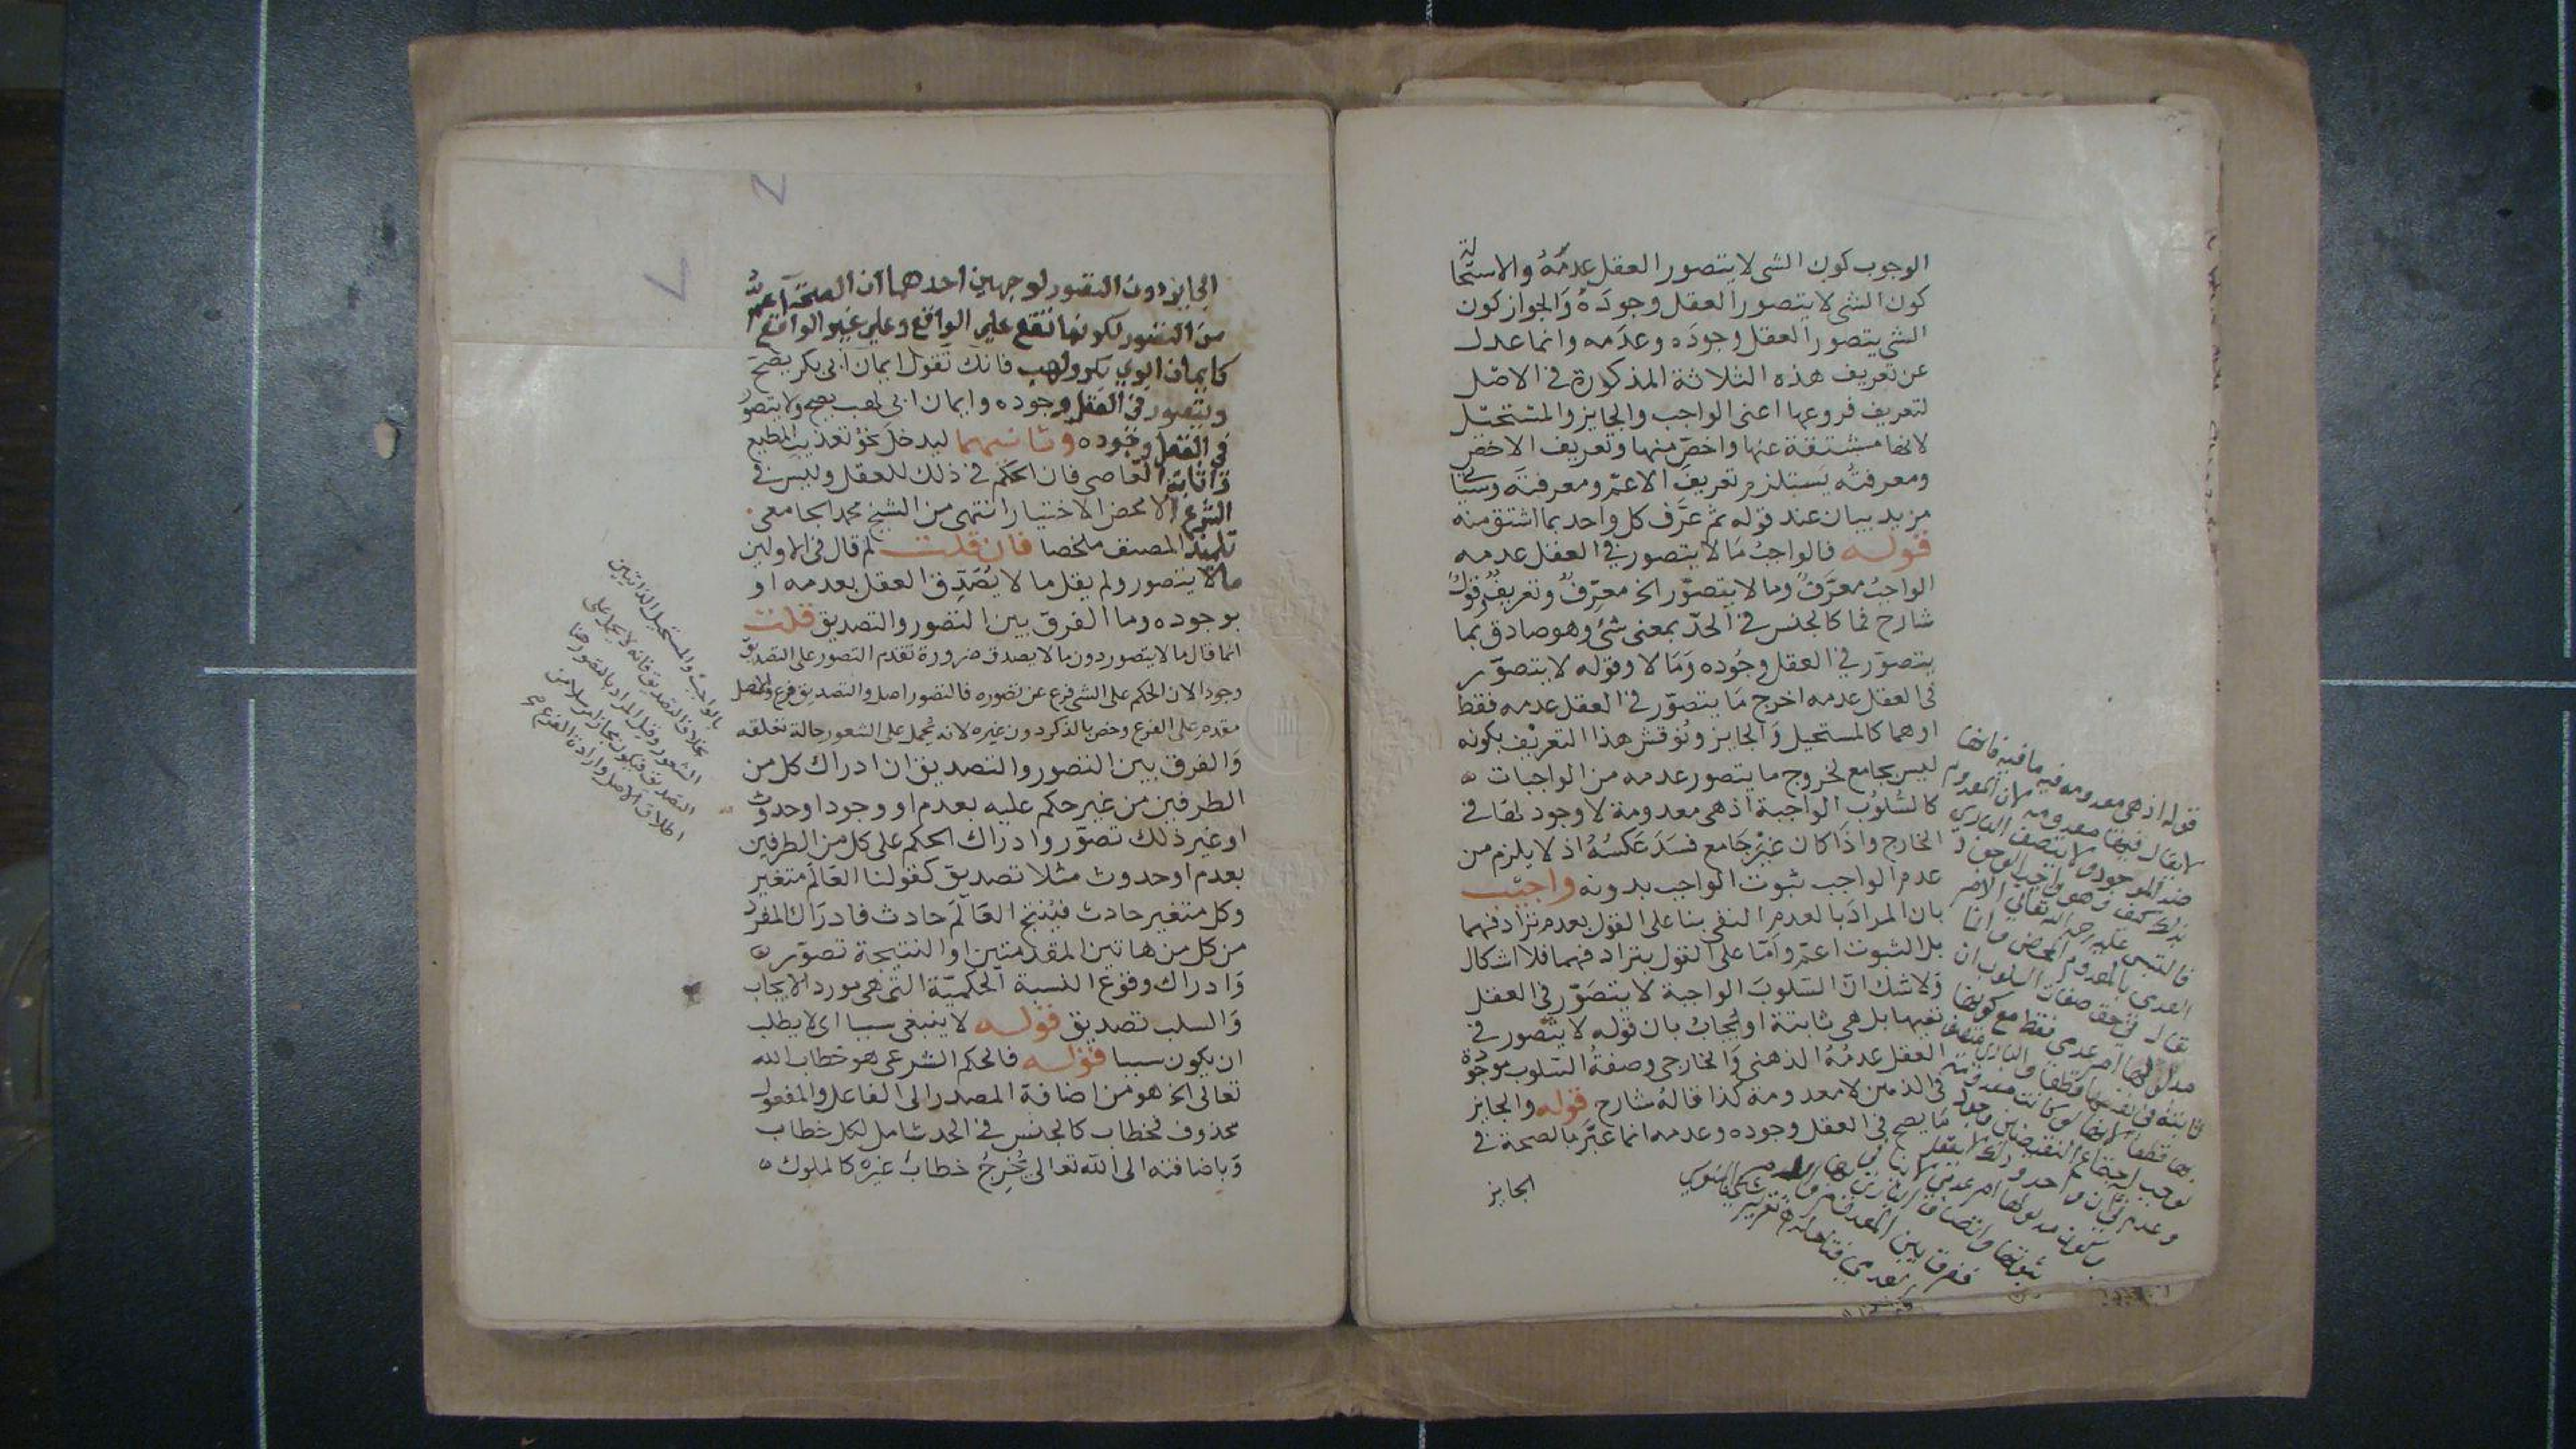 الوجوب كون الشى لا يتصور العقل عدمه والاستحالة
كون الشى لا يتصور العقل وجودَهُ وَالجواز كون
الشى يتصور العقل وجودَه وعدَمه وانما عدل
عن تعريف هذه الثلاثة المذكورة فى الاصل
لتعريف فروعها اعنى الواجب والجايز والمستحيل
لانها مشتقة عنها واخصّ منها وتعريف الاخص
ومعرفته يَستلزم تعريفَ الاعمّ ومعرفتَه وسياتى
مزيد بيان عند قوله ثم عرَّف كل واحد بما اشتق منه
قوله فالواجبُ مَا لا يتصور فى العقل عدمه
الواجبُ معرَّفٌ وما لا يتصوّر الخ معرِّفٌ وتعريفٌ وقولٌ
شارح فما كالجنس فى الحدّ بمعنى شئ وهو صادق بما
يتصوّر فى العقل وجُوده وَمَا لا وقوله لا يتصوّر
فى العقل عدمه اخرج مَا يتصوّر فى العقل عدمه فقط
او هما كالمستحيل وَالجايز ونُوقش هذا التعريف بكونه
ليس بجامع لخروج ما يتصور عدمه من الواجبات ه
كالسُلوُب الواجبة اذ هى معدومة لا وجود لها فى
الخارج واذَا كان غيْر جَامع فسَدَ عَكسُهُ اذ لا يلزم من
عدم الواجب ثبوت الواجب بدونه واجيب
بان المرادَ بالعدم النفى بنا على القول بعدم ترادفهما
بل الثبوت اعمّ واَمّا على القول بترادفهما فلا اشكال
وَلا شك انّ السّلوبَ الواجبة لا يتصَوّر فى العقل
نفيها بل هى ثابتة او يُجابُ بان قوله لا يتصور فى
العقل عدمُهُ الذهنى وَالخارجى وصفةُ السّلوب موجودة
فى الذهن لا معدومة كذا قالهُ شارح قوله والجايز
مَا يصح فى العقل وجوده وعدمه انما عبَّر بالصحة فى
الجايز
قوله اذ هى معدومه فيه ما فيه فانها
لا يقال فيها معدومه لان المعدوم
ضد الموجود ولا يتصف البارى
بذلك كيف وهو واجب الوجود
العدمى بالمعدوم المحض وانما
يقال فى حق صفات السلوب ان
مدلولها امر عدمى فقط مع كونها
الجايز دون التصور لوجهين احدهما ان الصحة اعم
من التصور لكونها تقع على الواقع وعلى غير الواقع
كايمان ابوي بكر ولهب فانك تقول ايمان ابى بكر يصح
ويتصور فى العقل وجوده وايمان ابى لهب يصح ولا يتصور
فى العقل وجُوده وثانيهما ليدخلَ نحوُ تعذيب المطيع
واثابة العَاصى فان الحكم فى ذلك للعقل وليس فى
الشرع الا محض الاختيار انتهى من الشيخ محمد الجامعى
تلميذ المصنف ملخصا فان قلت لم قال فى الاولين
ما لا يتصور ولم يقل ما لا يُصَدِّق العقل بعدمه او
بوجوده وما الفرق بين التصور والتصديق قلت
انما قال ما لا يتصور دون ما لا يصدق ضرورة تقدم التصور على التصديق
وجودا لان الحكم على الشى فرع عن تصوره فالتصور اصل والتصديق فرع والاصل
مقدم على الفرع وخص بالذكر دون غيره لانه يُحمل على الشعور حالة تعلقه
وَالفرق بين التصور والتصديق ان ادراك كل من
الطرفين من غير حكم عليه بعدم او وجود او حدوث
او غير ذلك تصوّر وادراك الحكم على كل من الطرفين
بعدم او حدوث مثلا تصديق كقولنا العَالَم متغير
وكل متغير حادث فيُنتج العَالَم حادث فادرَاك المفرد
من كل من هاتين المقدمتين او النتيجة تصوّر ه
وَادراك وقوع النسبة الحكميّة التى هى مورد الايجاب
وَالسلب تصديق قوله لا ينبغى سببا اى لا يطلب
ان يكون سببا قوله فالحكم الشرعى هو خطاب الله
تعالى الخ هو من اضافة المصدر الى الفاعل والمفعول
محذوف فخطاب كالجنس فى الحد شامل لكل خطاب
وَباضافته الى الله تعالى يُخرِجُ خطابُ غيره كالملوك ه
بالواجب والمستحيل الذاتيين
بخلاف التصديق فانه لا يحمل على
الشعور وقيل المراد بالتصور هنا
التصديق فيكون مجازا مرسلا من
اطلاق الاصل وارادة الفرع